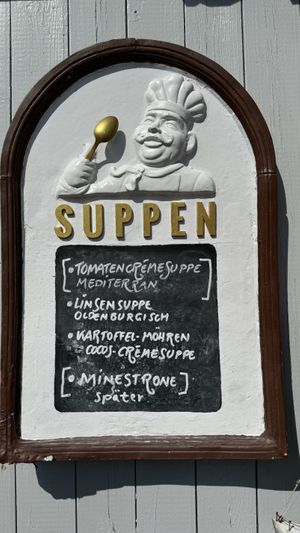 SUPPEN
[• TOMATENCRÉMESUPPE
MEDITERRAN]
• LINSENSUPPE
OLDENBURGISCH
• KARTOFFEL-MÖHREN
-COCOS-CRÈMESUPPE
[• MINESTRONE]
später